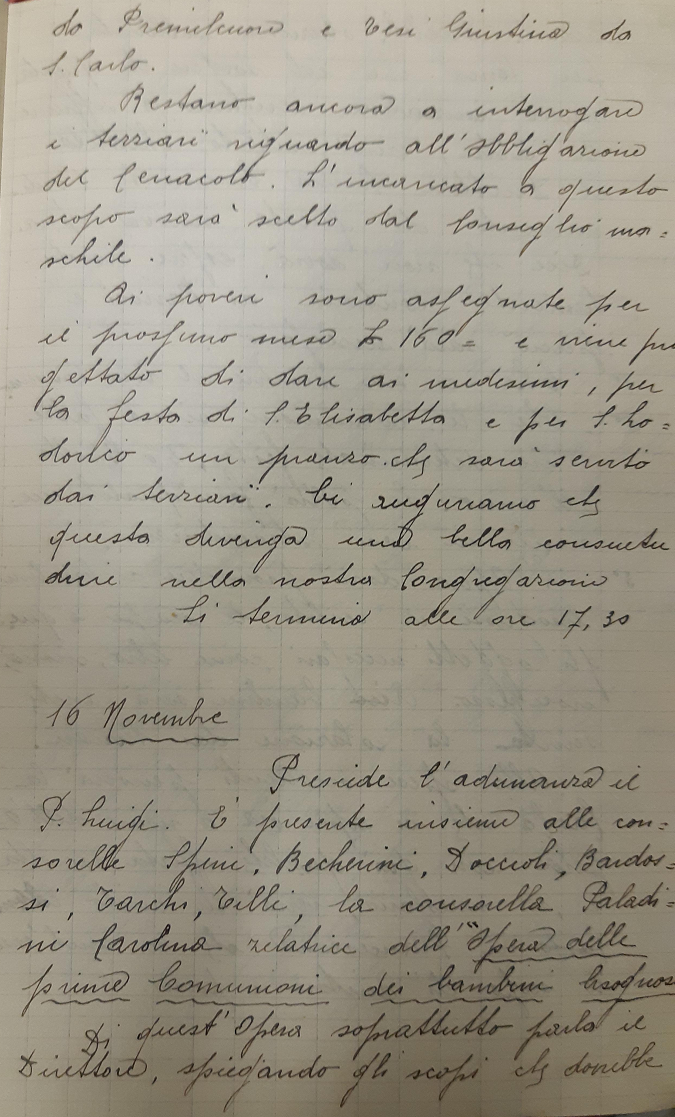 da Premilcuore e Tesi Giustina da
S. Carlo.
Restano ancora a interrogare
i terziari riguardo all'obbligazione
del Cenacolo. L'incaricato a questo
scopo sarà scelto dal Consiglio ma=
schile.
Ai poveri sono assegnate per
il prossimo mese £ 160= e viene pro
gettato di dare ai medesimi, per
la festa di S. Elisabetta e per S. Lo=
dovico un pranzo che sarà servito
dai terziari. Ci auguriamo che
questa divenga una bella consuetu
dine nella nostra Congregazione
Si termina alle ore 17,30
16 Novembre
Presiede l'adunanza il
P. Luigi. E' presente insieme alle con=
sorelle Spini, Becherini, Doccioli, Bardos=
si, Tarchi, Tilli, la consorella Paladi=
ni Carolina zelatrice dell'"Opera delle
prime Comunioni dei bambini bisognosi
Di quest'Opera soprattutto parla il
Direttore, spiegando gli scopi che dovrebbe